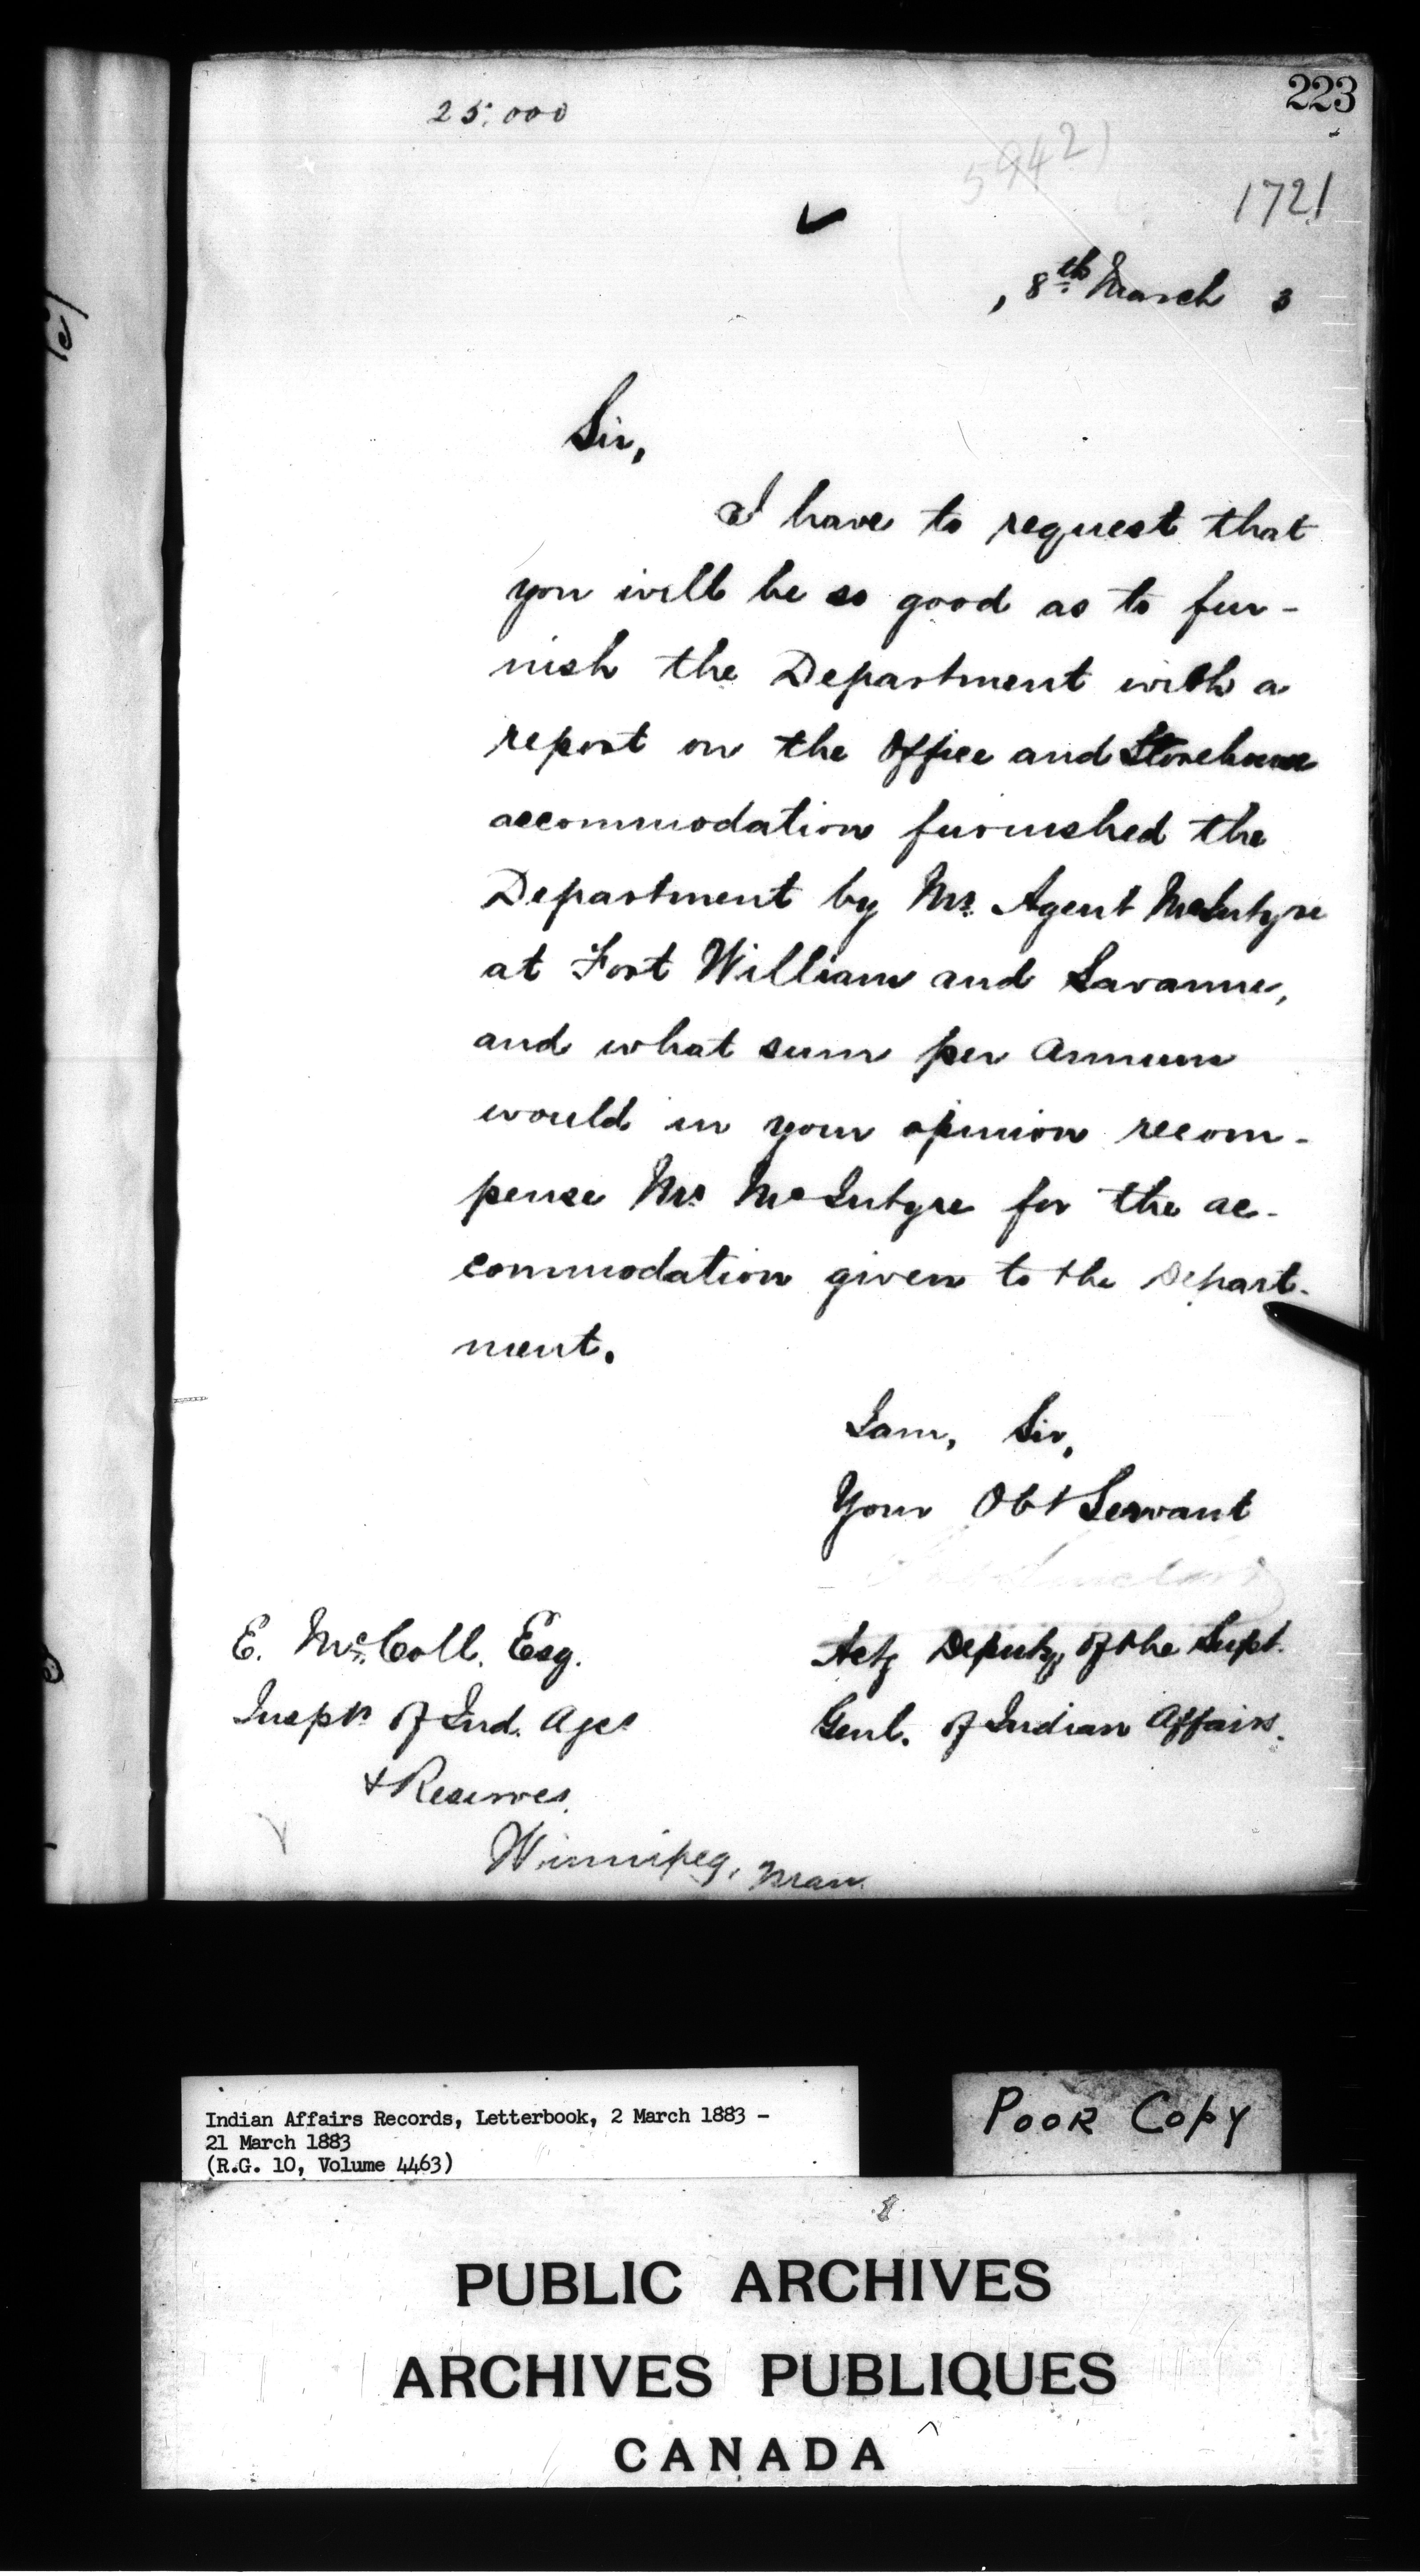 223
25,000
59421
1721
, 8th March 3
Sir,
I have to request that
you will be so good as to fur-
nish the Department with a
report on the Office and Storehouse
accommodation furnished the
Department by Mr. Agent McIntyre
at Fort William and Savanne,
and what sum per annum
would in your opinion recom-
pense Mr McIntyre for the ac-
commodation given to the Depart-
ment.
I am, Sir,
Your Obt Servant
E. McColl. Esq.
Inspr of Ind. Ages
& Reserves.
Winnipeg, Man.
Actg Deputy of the Supt.
Genl. of Indian Affairs.
Indian Affairs Records, Letterbook, 2 March 1883 -
21 March 1883
(R.G. 10, Volume 4463)
POOR COPY
PUBLIC ARCHIVES
ARCHIVES PUBLIQUES
CANADA